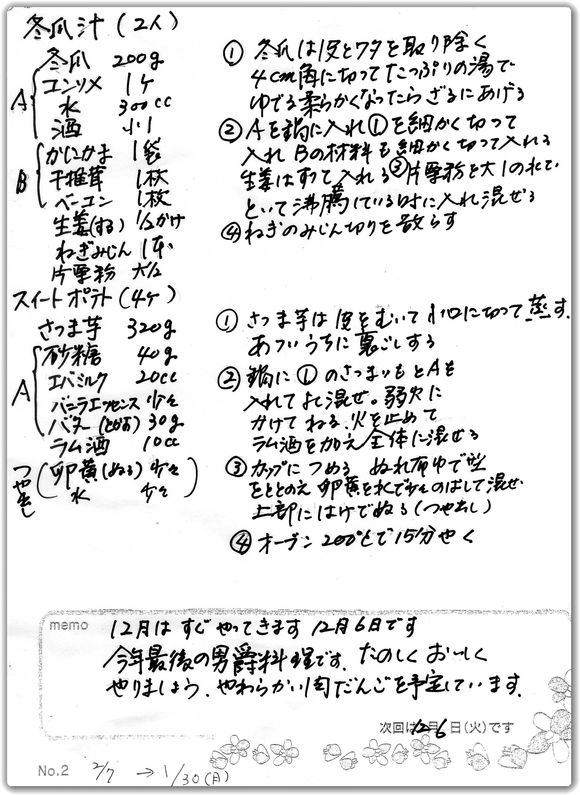 冬瓜汁(2人)
冬瓜 200g
A コンソメ 1ケ
水 300cc
酒 小1
B かにかま 1袋
干椎茸 1枚
ベーコン 1枚
生姜(する) 1/2かけ
ねぎみじん 1本
片栗粉 大1/2
① 冬瓜は皮とワタを取り除く
4cm角に切ってたっぷりの湯で
ゆでる柔らかくなったらざるにあげる
② Aを鍋に入れ①を細かく切って
入れBの材料も細かく切って入れる
生姜はすって入れる③片栗粉を大1の水で
といて沸騰している時に入れ混ぜる
④ねぎのみじん切りを散らす
スイートポテト(4ケ)
さつま芋 320g
A 砂糖 40g
エバミルク 20cc
バニラエッセンス 少々
バター(とかす) 30g
ラム酒 10cc
つや出し (卵黄(ぬる) 少々
水 少々)
① さつま芋は皮をむいて1口に切って蒸す.
あついうちに裏ごしする
② 鍋に①のさつまいもとAを
入れてよく混ぜ。弱火に
かけてねる.火を止めて
ラム酒を加え全体に混ぜる
③ カップにつめる ぬれ布巾で型
をととのえ 卵黄を水で少々のばして混ぜ
上部にはけでぬる(つや出し)
④ オーブン200°Cで15分やく
memo
12月はすぐやってきます 12月6日です
今年最後の男爵料理です. たのしくおいしく
やりましょう. やわらかい肉だんごを予定しています.
次回は12月6日(火)です
No.2 2/7 →1/30(月)